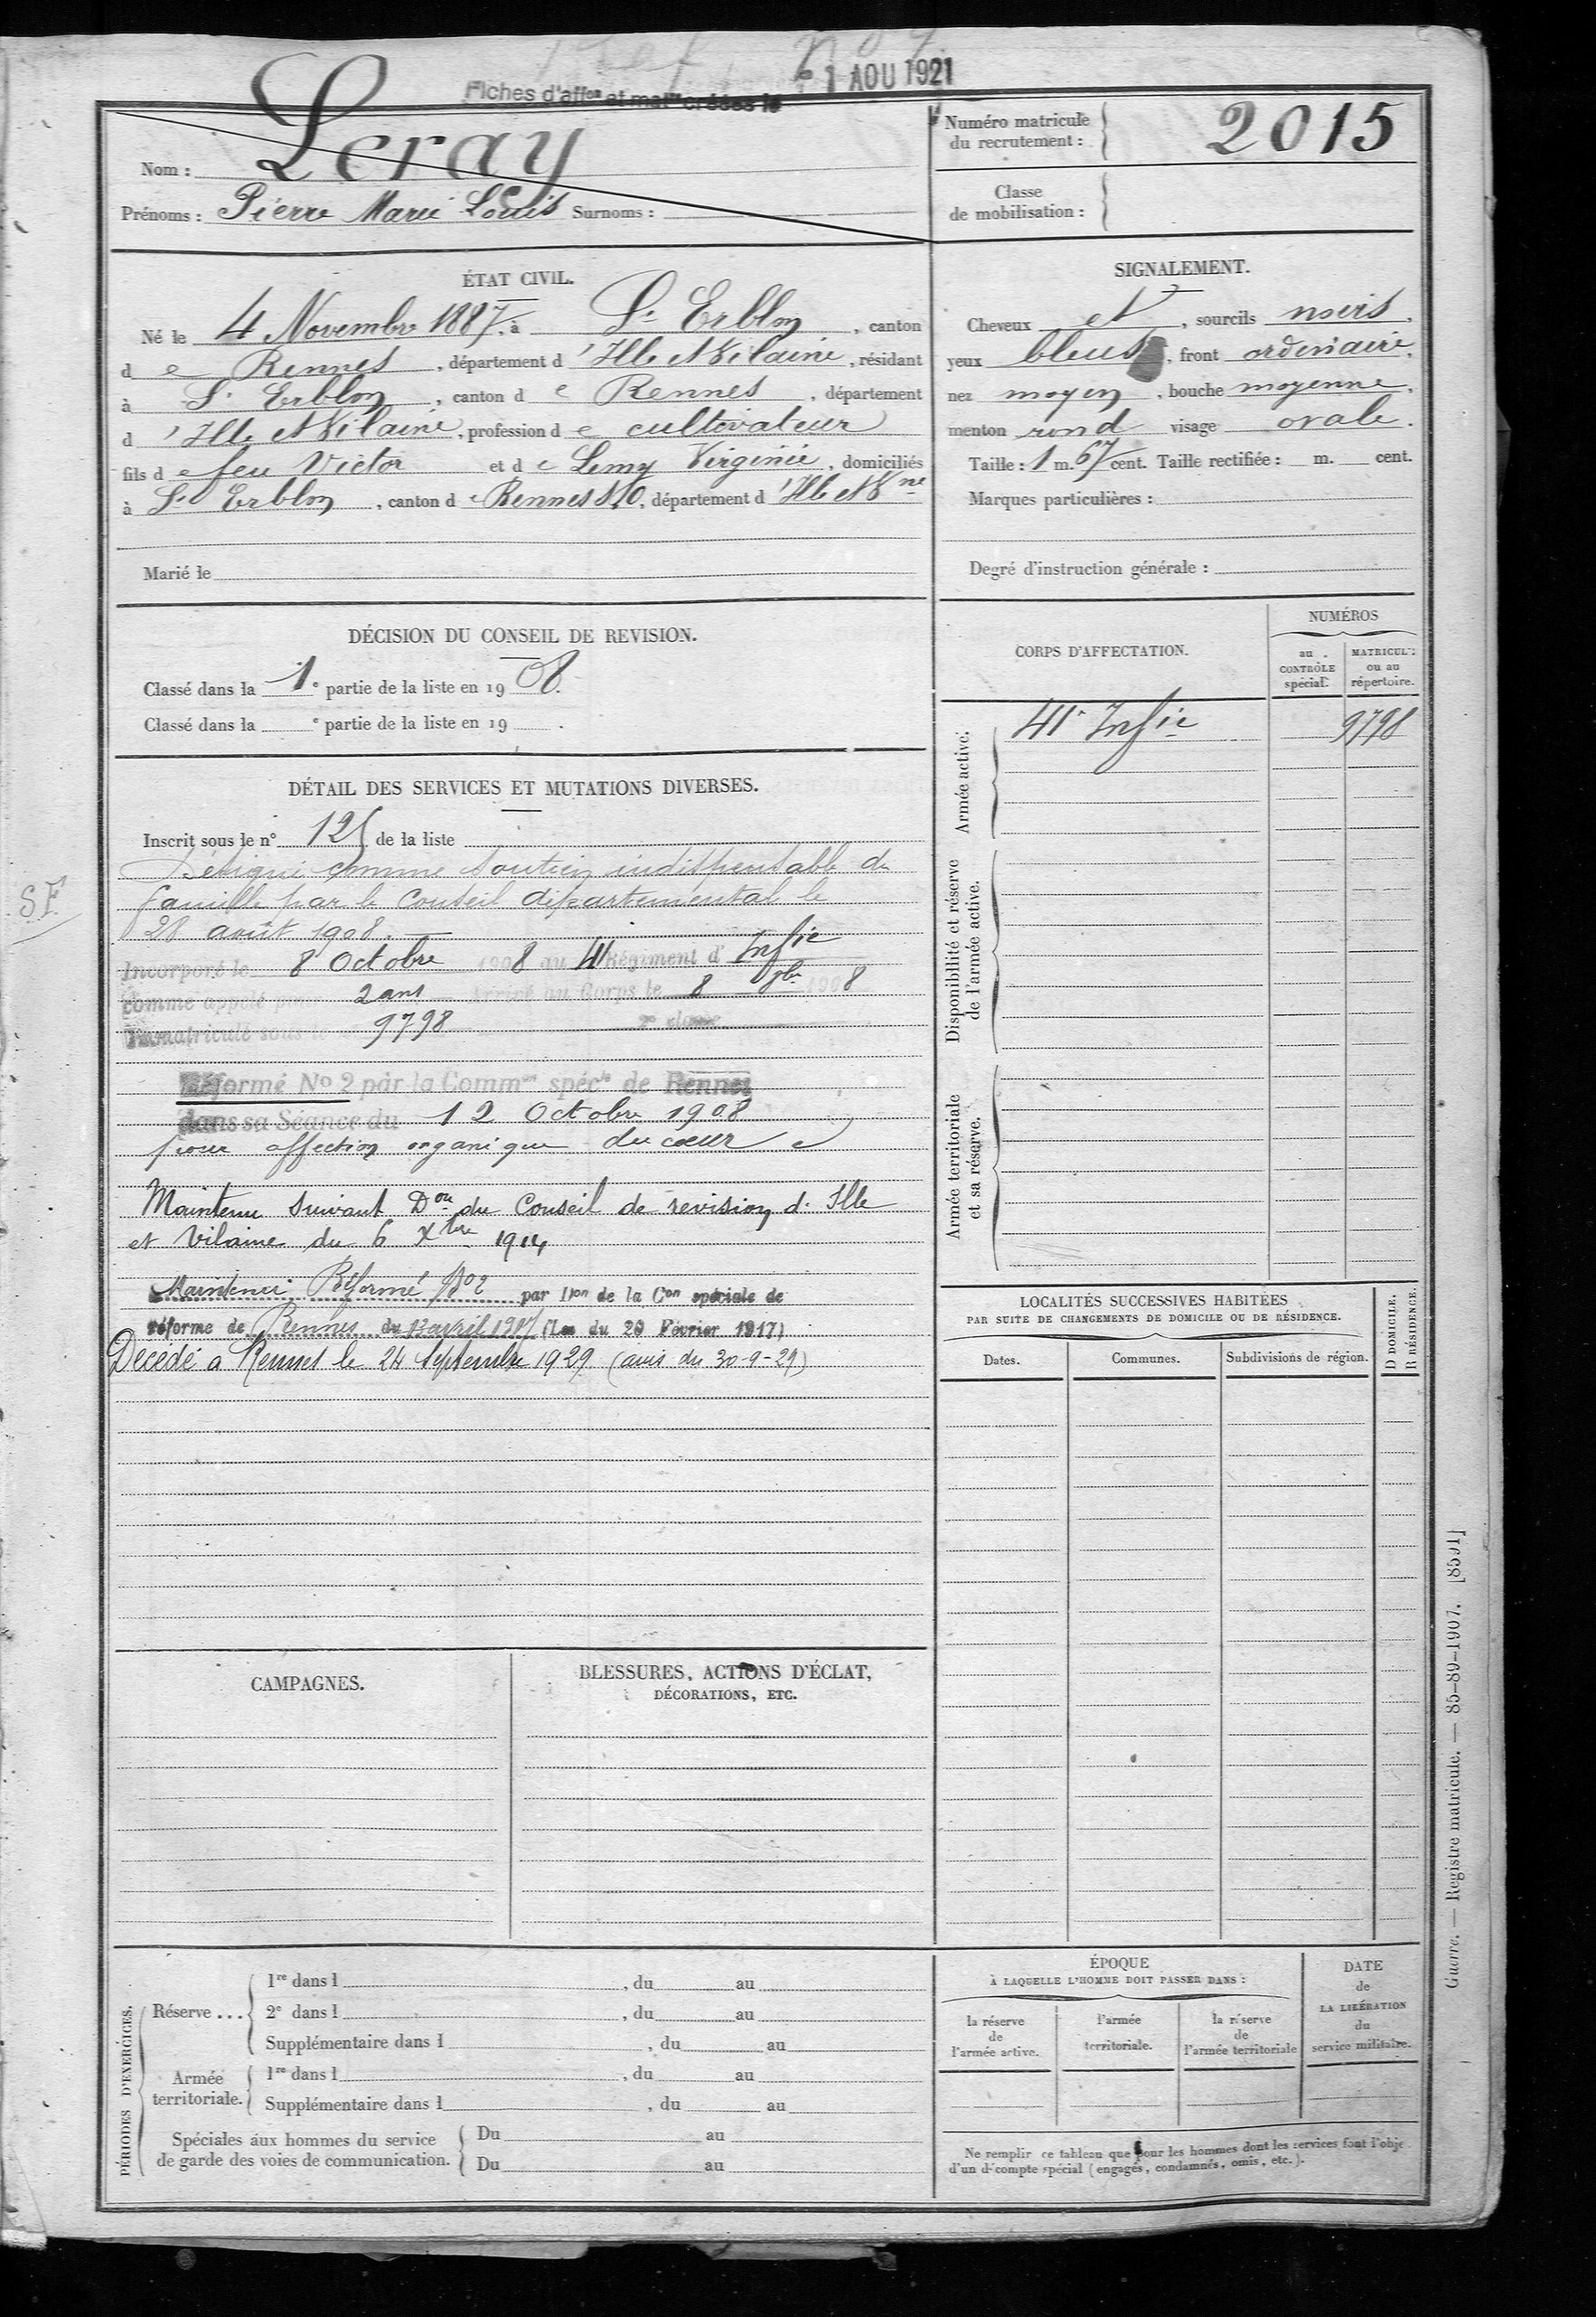 Réf N° 2
Fiches d'aff<sup>on</sup> et mat<sup>le</sup> créées le 1 AOU 1921
Nom : Leray
Prénoms : Pierre Marie Louis Surnoms :
Numéro matricule
du recrutement : 2015
Classe
de mobilisation :
ÉTAT CIVIL.
Né le 4 Novembre 1887, à St Erblon, canton
de Rennes, département d'Ille et Vilaine, résidant
à St Erblon, canton de Rennes, département
d'Ille et Vilaine, profession de cultivateur
fils de feu Victor et de Lemy Virginie, domiciliés
à St Erblon, canton de Rennes S.O, département d'Ille et Vne
Marié le
SIGNALEMENT.
Cheveux et, sourcils noirs,
yeux bleus, front ordinaire,
nez moyen, bouche moyenne,
menton rond visage ovale.
Taille : 1 m. 67 cent. Taille rectifiée : m. cent.
Marques particulières :
Degré d'instruction générale :
DÉCISION DU CONSEIL DE REVISION.
Classé dans la 1e partie de la liste en 1908.
Classé dans la e partie de la liste en 19 .
DÉTAIL DES SERVICES ET MUTATIONS DIVERSES.
Inscrit sous le n° 125 de la liste
Désigné comme soutien indispensable de
famille par le Conseil départemental le
28 août 1908.
Incorporé le 8 Octobre 1908 au 41 Régiment d'Infie
comme appelé pour 2 ans Arrivé au Corps le 8 8bre 1908
Immatriculé sous le 9798 2e classe
Réformé No 2 par la Common spéle de Rennes
dans sa Séance du 12 Octobre 1908
pour affection organique du cœur
Maintenu suivant Don du Conseil de revision d'Ille
et Vilaine du 6 Xbre 1914
Maintenu Réformé No2 par Don de la Con spéciale de
réforme de Rennes du 13 avril 1917 (Loi du 20 Février 1917)
Décédé à Rennes le 24 Septembre 1929 (avis du 30-9-29)
SF
CORPS D'AFFECTATION.
NUMÉROS
au CONTRÔLE spécial.
MATRICULE ou au répertoire.
Armée active.
41e Infie 9798
Disponibilité et réserve
de l'armée active.
Armée territoriale
et sa réserve.
LOCALITÉS SUCCESSIVES HABITÉES
PAR SUITE DE CHANGEMENTS DE DOMICILE OU DE RÉSIDENCE.
Dates. Communes. Subdivisions de région.
D DOMICILE.
R RÉSIDENCE.
CAMPAGNES.
BLESSURES, ACTIONS D'ÉCLAT,
DÉCORATIONS, ETC.
PÉRIODES D'EXERCICES.
Réserve ...
1re dans l , du au
2e dans l , du au
Supplémentaire dans l , du au
Armée
territoriale.
1re dans l , du au
Supplémentaire dans l , du au
Spéciales aux hommes du service
de garde des voies de communication.
Du au
Du au
ÉPOQUE
À LAQUELLE L'HOMME DOIT PASSER DANS :
la réserve
de
l'armée active.
l'armée
territoriale.
la réserve
de
l'armée territoriale
DATE
de
LA LIBÉRATION
du
service militaire.
Ne remplir ce tableau que pour les hommes dont les services font l'obje
d'un décompte spécial (engagés, condamnés, omis, etc.).
Guerre. — Registre matricule. — 85-89-1907. [8591]